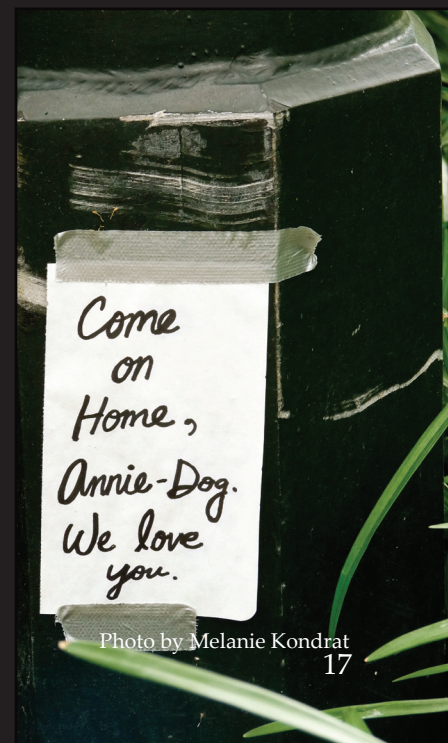 Come
on
Home,
Annie-Dog.
We love
you.
Photo by Melanie Kondrat
17